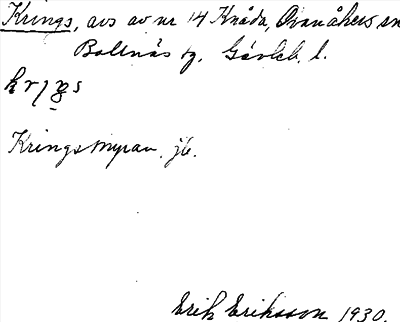 Krings, avs av nr 14 Knåda, Ovanåkers sn
Bollnäs tg, Gävleb. l.
Kringsmyran, jb.
Erik Eriksson 1930.